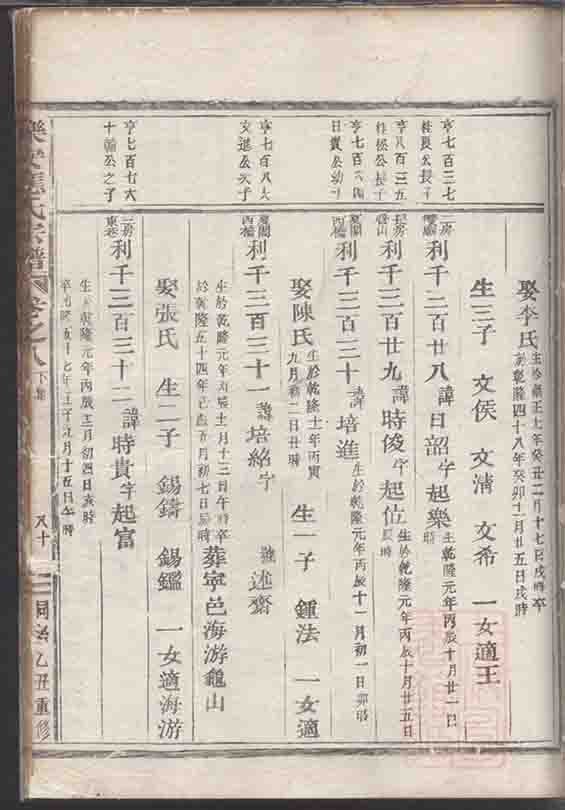 娶李氏 生於雍正十一年癸丑二月十七日戌時卒
於乾隆四十八年癸卯十二月廿五日戌時
生三子 文侯 文清 文希 一女適王
亨七百三七
桂良公長子
二房
利千三百廿八 諱日韶 字起樂 生於乾隆元年丙辰十月廿一日
時
亨八百三五
桂松公長子
長房
利千三百廿九 諱時俊 字起位 生於乾隆元年丙辰十月廿五日
辰時
亨七百六四
日貴公幼子
西樓
利千三百三十 諱培進 生於乾隆元年丙辰十一月初一日卯時
娶陳氏 生於乾隆十一年丙寅
九月初二日丑時
生一子 鍾法 一女適
亨七百八八
文進公次子
西樓
利千三百三十一 諱培紹 字 號述齋
生於乾隆元年丙辰十一月十三日午時卒
於乾隆五十四年己酉五月初七日 時
葬寧邑海游龜山
娶張氏 生二子 錫鑄 錫鑑 一女適海游
亨七百七六
十翰公之子
二房
東巷
利千三百三十二 諱時貴 字起富
生於乾隆元年丙辰 月初四日亥時
卒 隆五十七年壬子 月十五日午時
氏宗譜 卷之八 下集 八十二 同治乙丑重修